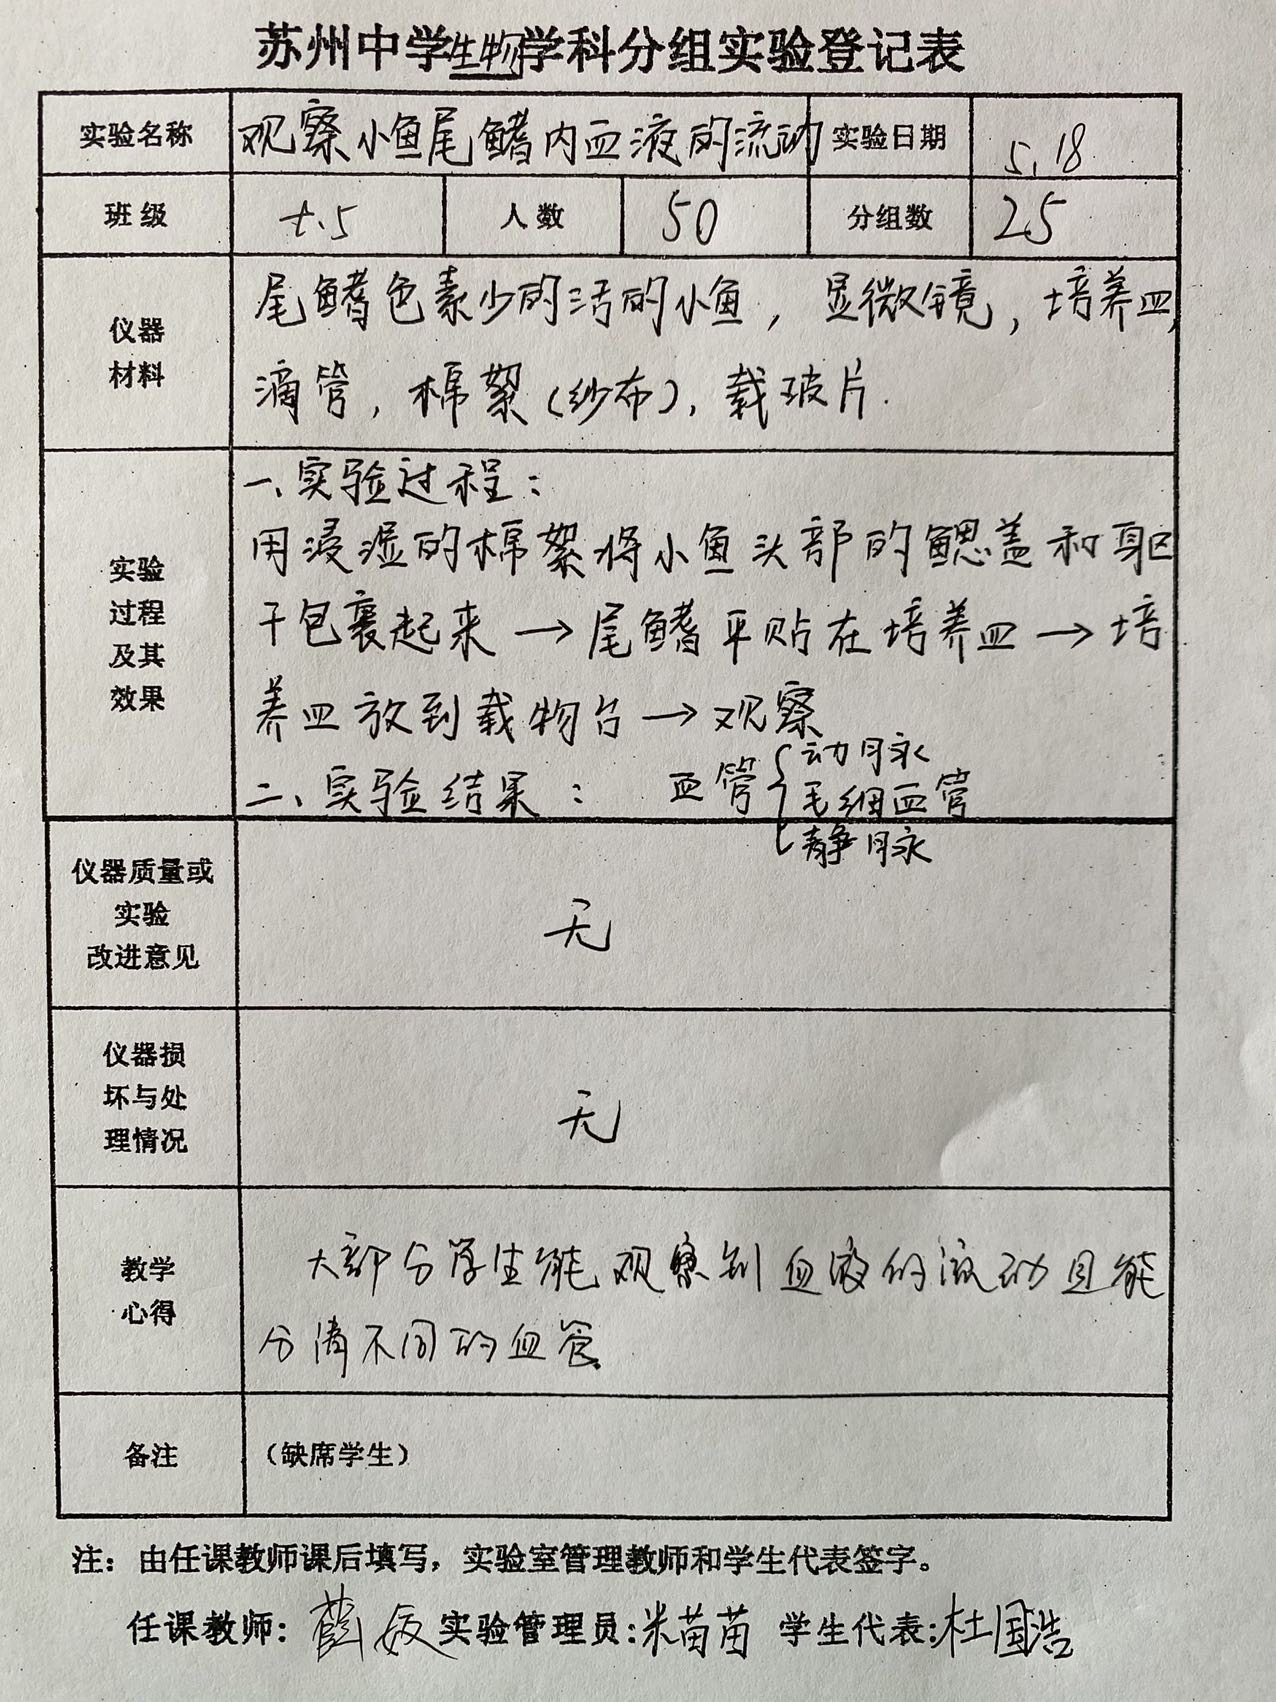 苏州中学生物学科分组实验登记表
实验名称 观察小鱼尾鳍内血液的流动 实验日期 5.18
班级 七.5 人数 50 分组数 25
仪器
材料
尾鳍色素少的活的小鱼，显微镜，培养皿，
滴管，棉絮（纱布），载玻片.
实验
过程
及其
效果
一、实验过程：
用浸湿的棉絮将小鱼头部的鳃盖和躯
干包裹起来→尾鳍平贴在培养皿→培
养皿放到载物台→观察
二、实验结果： 血管{动脉
毛细血管
静脉
仪器质量或
实验
改进意见
无
仪器损
坏与处
理情况
无
教学
心得
大部分学生能观察到血液的流动且能
分清不同的血管.
备注 （缺席学生）
注：由任课教师课后填写，实验室管理教师和学生代表签字。
任课教师: 实验管理员:米苗苗 学生代表:杜国浩